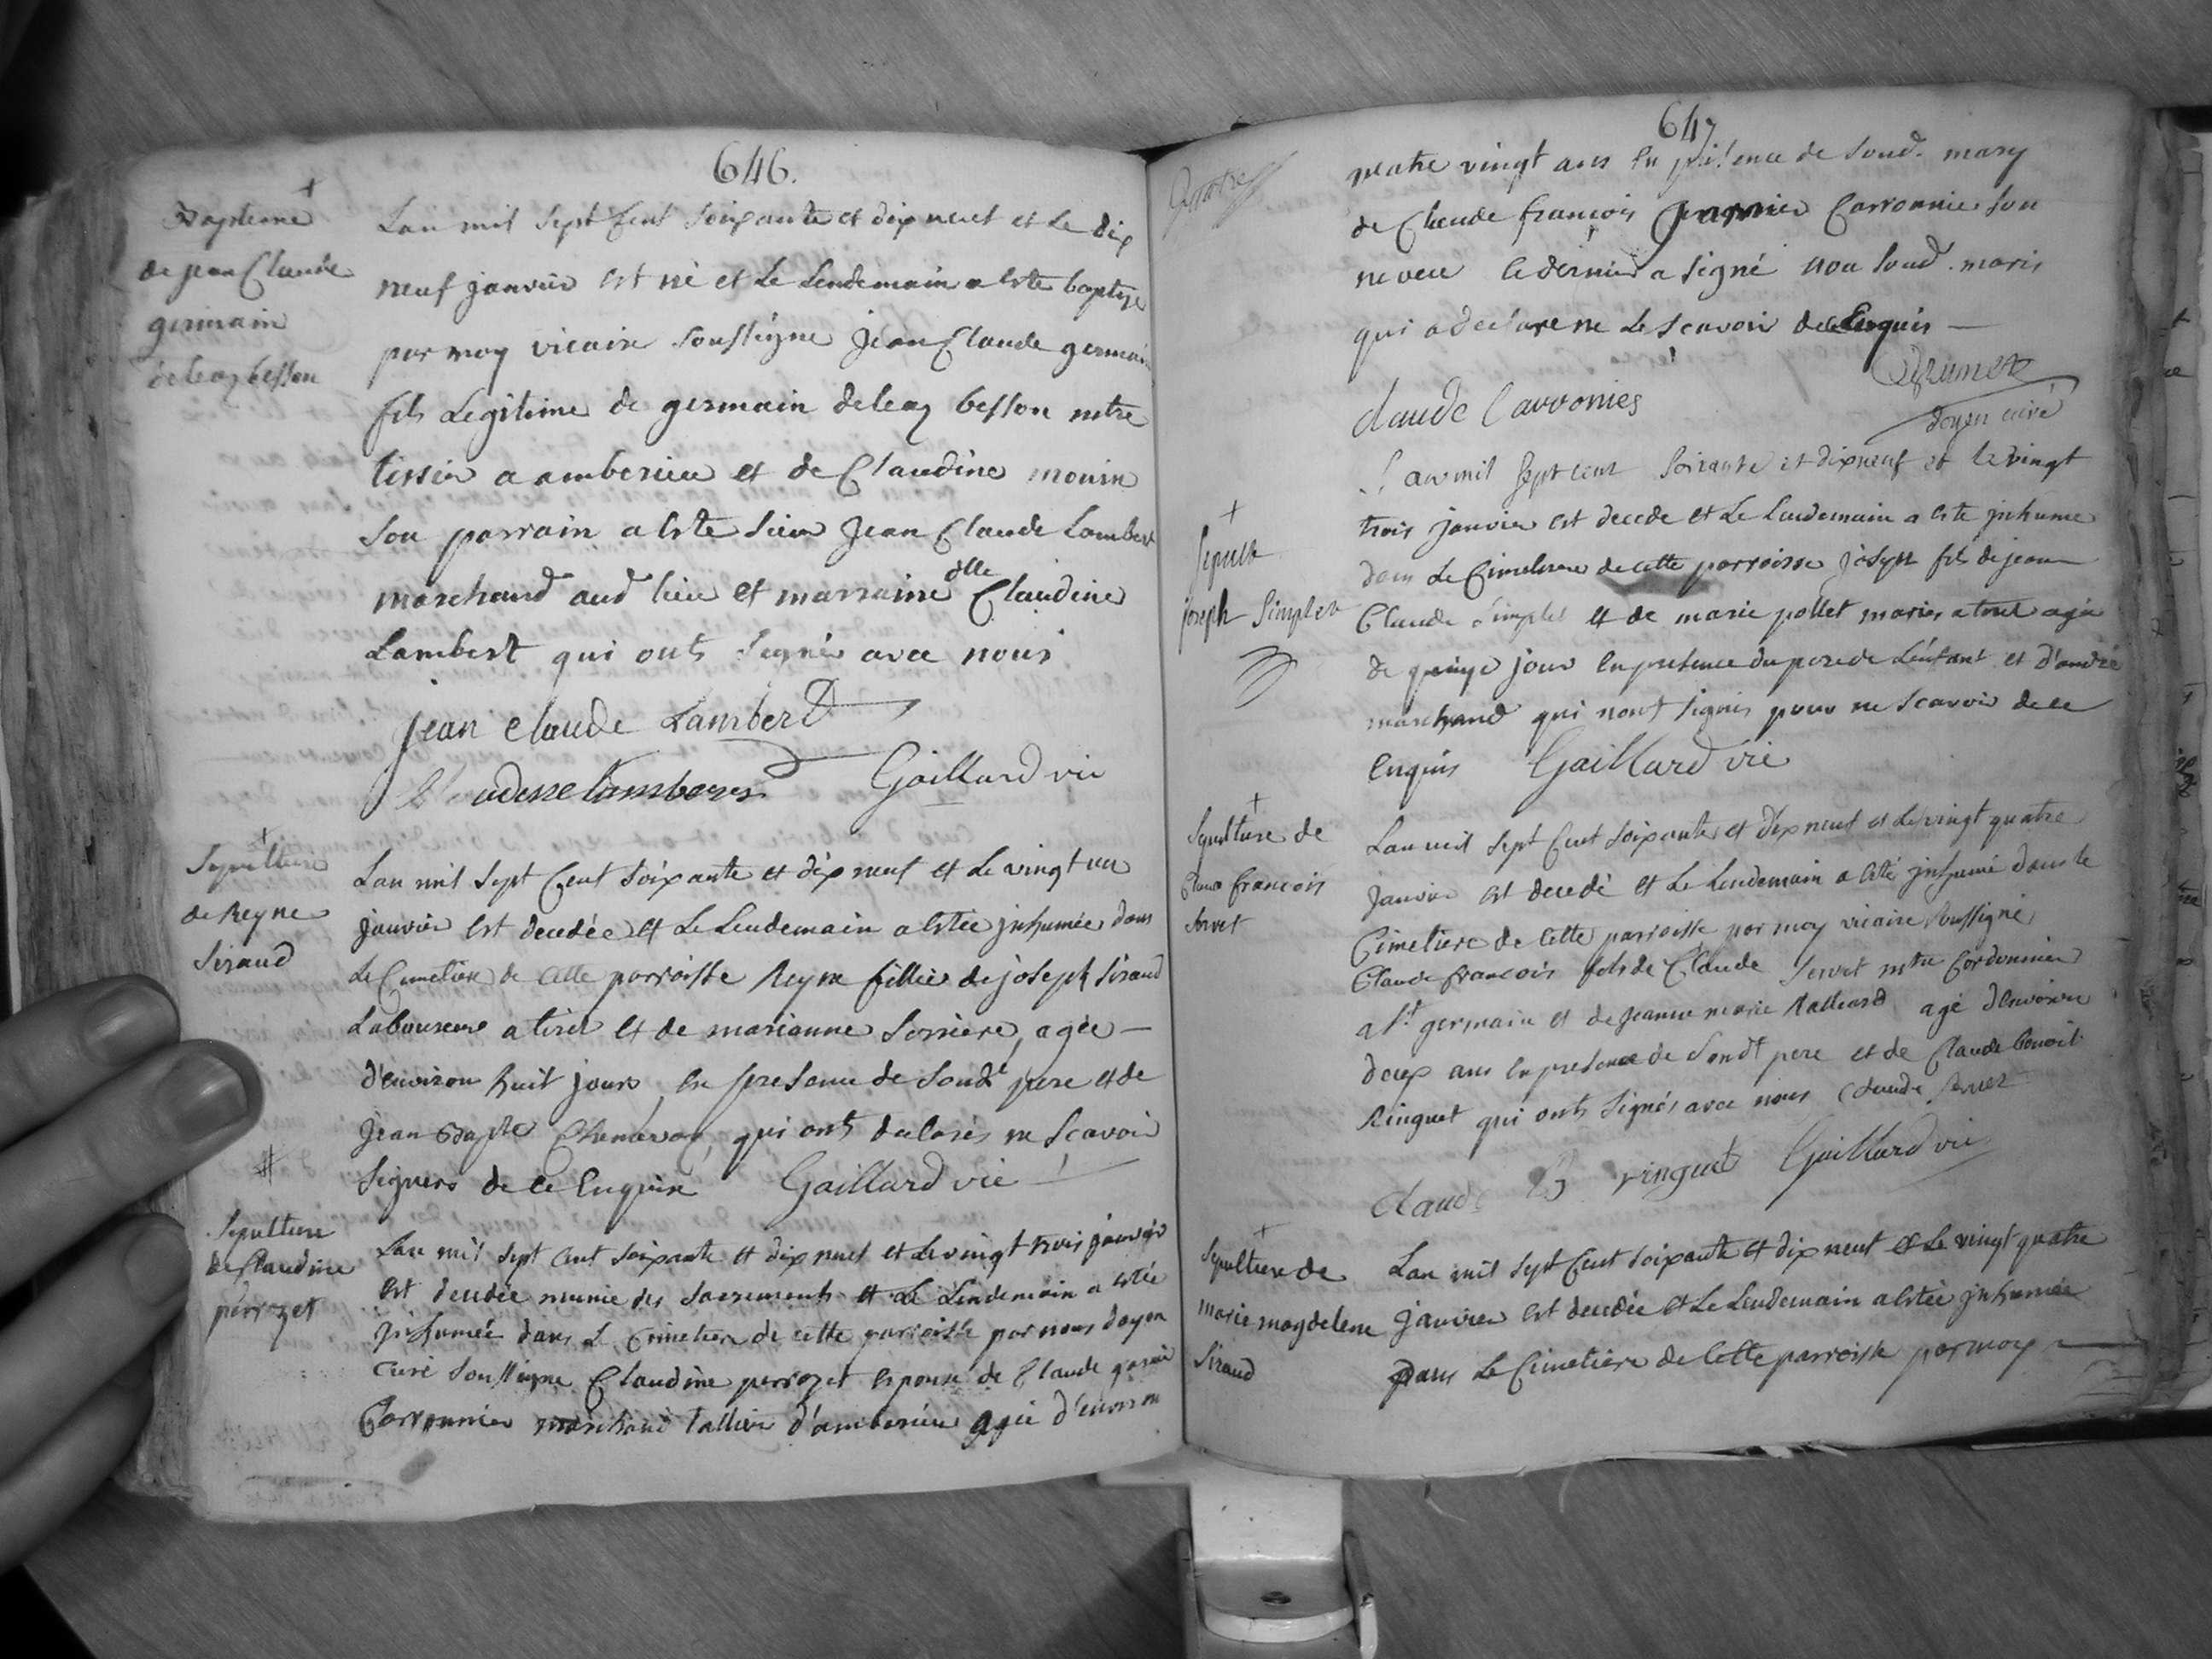 646.
Bapteme
de jean Claude
germain
deleaz besson
Lan mil sept Cent soixante et dix neuf et Le dix
neuf janvier est né et Le Lendemain a este baptize
par moy vicaire soussigne Jean Claude germain
fils Legitime de germain deleaz besson mtre
tissier a amberieu et de Claudine monin
son parrain a este sieur Jean Claude Lambert
marchand aud lieu et marraine dlle Claudine
Lambert qui onts signés avec nous
jean claude Lambert
Gaillard vic
Sepulture
de Reyne
Siraud
Lan mil sept Cent soixante et dix neuf et Le vingt un
janvier est decedée et Le Lendemain a estée inhumée dans
Le Cimetiere de cette parroisse Reyne fillie de joseph Siraud
Laboureur a tiret et de marianne Serriere, agée
d'environ huit jours, en presence de sondt pere et de
Jean Bapte qui onts declarés ne scavoir
signers de ce Enquire Gaillard vic
Sepulture
de Claudine
perrozet
Lan mil sept cent soixante et dix neuf et Le vingt trois janvier
est decedée munie des sacrements et Le Lendemain a estée
inhumée dans Le Cimetiere de cette parroisse par nous doyen
curé soussigne Claudine perrozet Epouse de Claude
Carronnier marchand d'amberieu agée d'environ
647
Quatre
quatre vingt ans En présence de soud. mary
de Claude françois Carronnier son
neveu le dernier a signé non soud. maris
qui a declare ne Le scavoir de ce Enquis
claude Carronier
Brunet
doyen curé
Lan mil sept cent soixante et dix neuf et le vingt
trois janvier est decede et Le Lendemain a este inhume
dans Le Cimetiere de cette parroisse joseph fils de jean
Claude Simplet et de marie pollet mariés a tiret agé
de quinze jour En presence du pere de L'enfant et d'andré
marchand qui nont signés pour ne scavoir de ce
Enquis Gaillard vic
Sepult
joseph Simplet
Sepulture de
Claude francois
Servet
Lan mil sept Cent soixante et dix neuf et Le vingt quatre
Janvier est decedé et Le Lendemain a esté inhumé dans le
Cimetiere de Cette parroisse par moy vicaire soussigné
Claude francois fils de Claude Servet mtre Cordonnier
a St germain et de jeanne marie agé d'environ
deux ans En presence de sondt pere et de Claude benoit
Ringuet qui onts signés avec nous Claude Servet
Claude B ringuet Gaillard vic
Sepulture de
marie magdelene
Siraud
Lan mil sept Cent soixante et dix neuf et Le vingt quatre
janvier est decedée et Le Lendemain a estée inhumée
Dans Le Cimetiere de Cette parroisse par moy